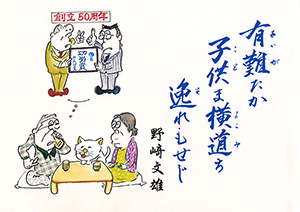 創立50周年
功労賞
有難だか
子供ま横道ち
逸れもせじ
野﨑文雄